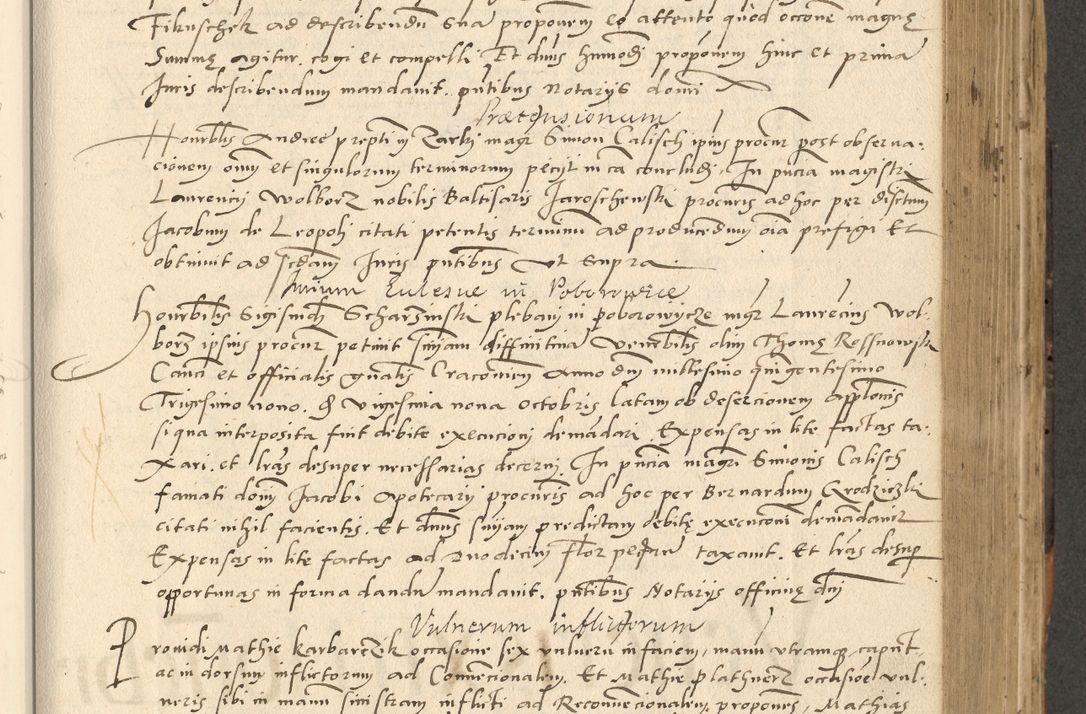 Fikuschek ad describendũ sua proponem eo attento quod occõne magnę
Summę agitur, cogi et compelli Et dñus hmõdi proponem hinc et prima
Iuris describendum mandauit. pñtibus Notarys domi
Prætensionum
Honrblis Andree prepti in Zarki magr Simon Calisch ipius procur post observa-
cionem oñi et singulorum terminorum peciit in ca concludi, In pñcia magistri
Laurency Wolborz nobilis Baltisaris Jaroschewski procuris ad hoc per discrtum
Jacobum de Leopoli citati petentis terminũ ad producendum oia prefigi Et
obtinuit ad scdam Iuris pñtibus vt supra.
in Poborowicze
Honrbilis Sigismdi Scharzinski plebani in poborowycze mgr Laurecius Wol-
borz ipsius procur petiuit snĩam diffinitiuã Venerblis olim Thomę Rossnowski
Canci et officialis gñalis Cracouien Anno dñi millesimo quingentesimo
Trigesimo nono, d Vigesima nona Octobris latam ob desercionem applõnis
si qua interposita fuit debite execucioni demãdari Expensas in lite factas ta-
xari, et lrãs desuper necessarias decerni, In pñcia magri Simonis Calisch
famati domi Jacobi Apotecary procuris ad hoc per Bernardum Grodziczki
citati nihil facientis, Et dñus snĩam predictam debitę execucõni demãdauit
Expensas in lite factas ad Duodecim flor taxauit, Et lrãs desuper
opportunas in forma dandũ mandauit, pñtibus Notarys officiuę dñi
Vulnerum inflictorum
Prouidi Mathie Karbarczik occasione sex vulnerũ in faciem, manũ vtramqę caput,
ac in dorsum inflictorum ad Conuencionalem, Et Mathie plathnerz occasiõe vul-
neris sibi in manũ sinistram inflicti ad Reconuẽcionalem, proponẽs, Mathias